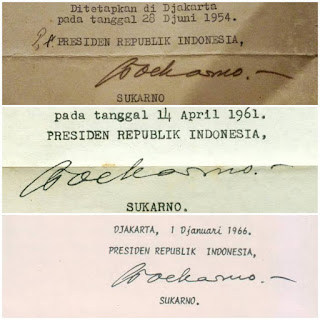 Ditetapkan di Djakarta
pada tanggal 28 Djuni 1954.
PRESIDEN REPUBLIK INDONESIA,
Soekarno.-
SUKARNO
pada tanggal 14 April 1961.
PRESIDEN REPUBLIK INDONESIA,
Soekarno.-
SUKARNO.
DJAKARTA, 1 Djanuari 1966.
PRESIDEN REPUBLIK INDONESIA,
Soekarno.-
SUKARNO.